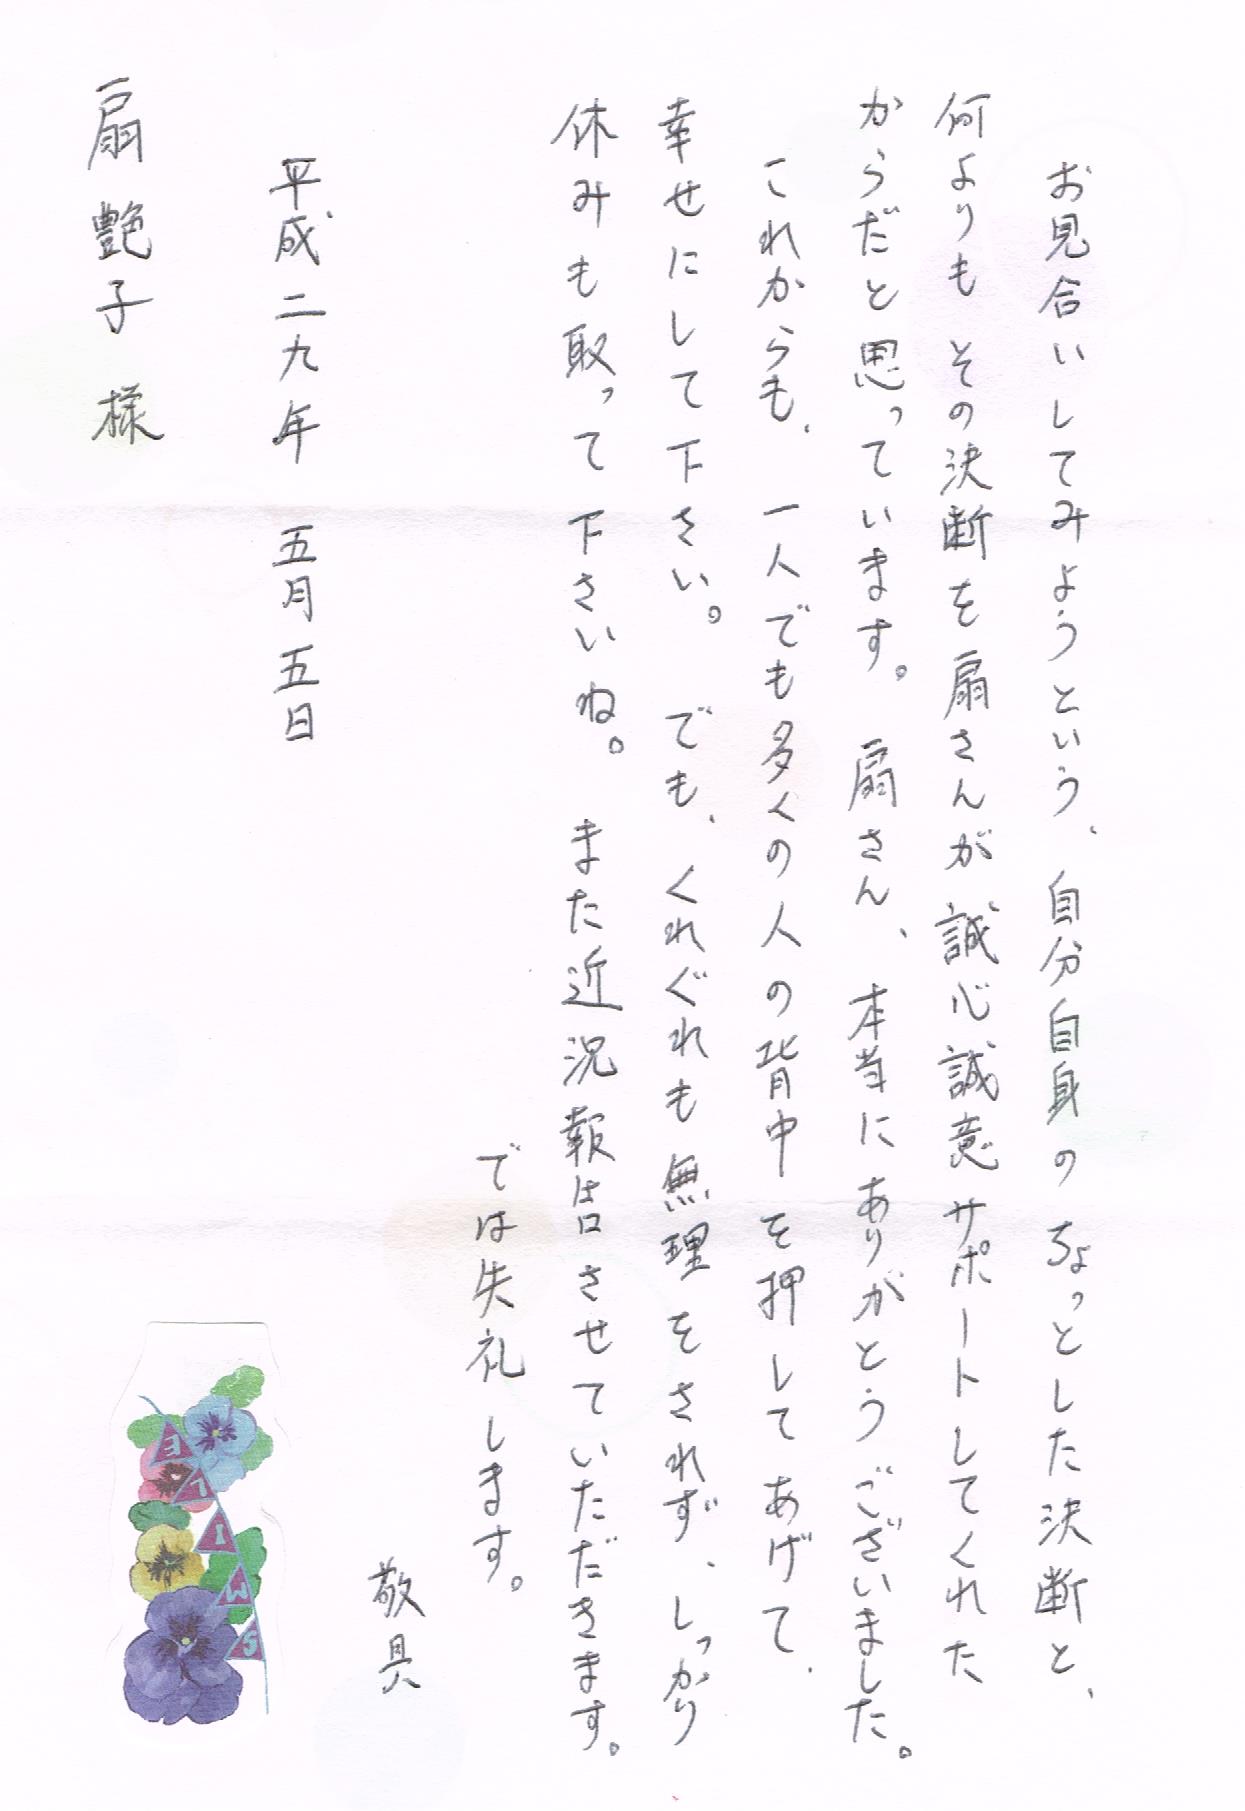 お見合いしてみようという、自分自身のちょっとした決断と、
何よりもその決断を扇さんが誠心誠意サポートしてくれた
からだと思っています。扇さん、本当にありがとうございました。
これからも、一人でも多くの人の背中を押してあげて、
幸せにして下さい。でも、くれぐれも無理をされず、しっかり
休みも取って下さいね。また近況報告させていただきます。
では失礼します。
敬具
平成二九年 五月五日
扇 艶子 様